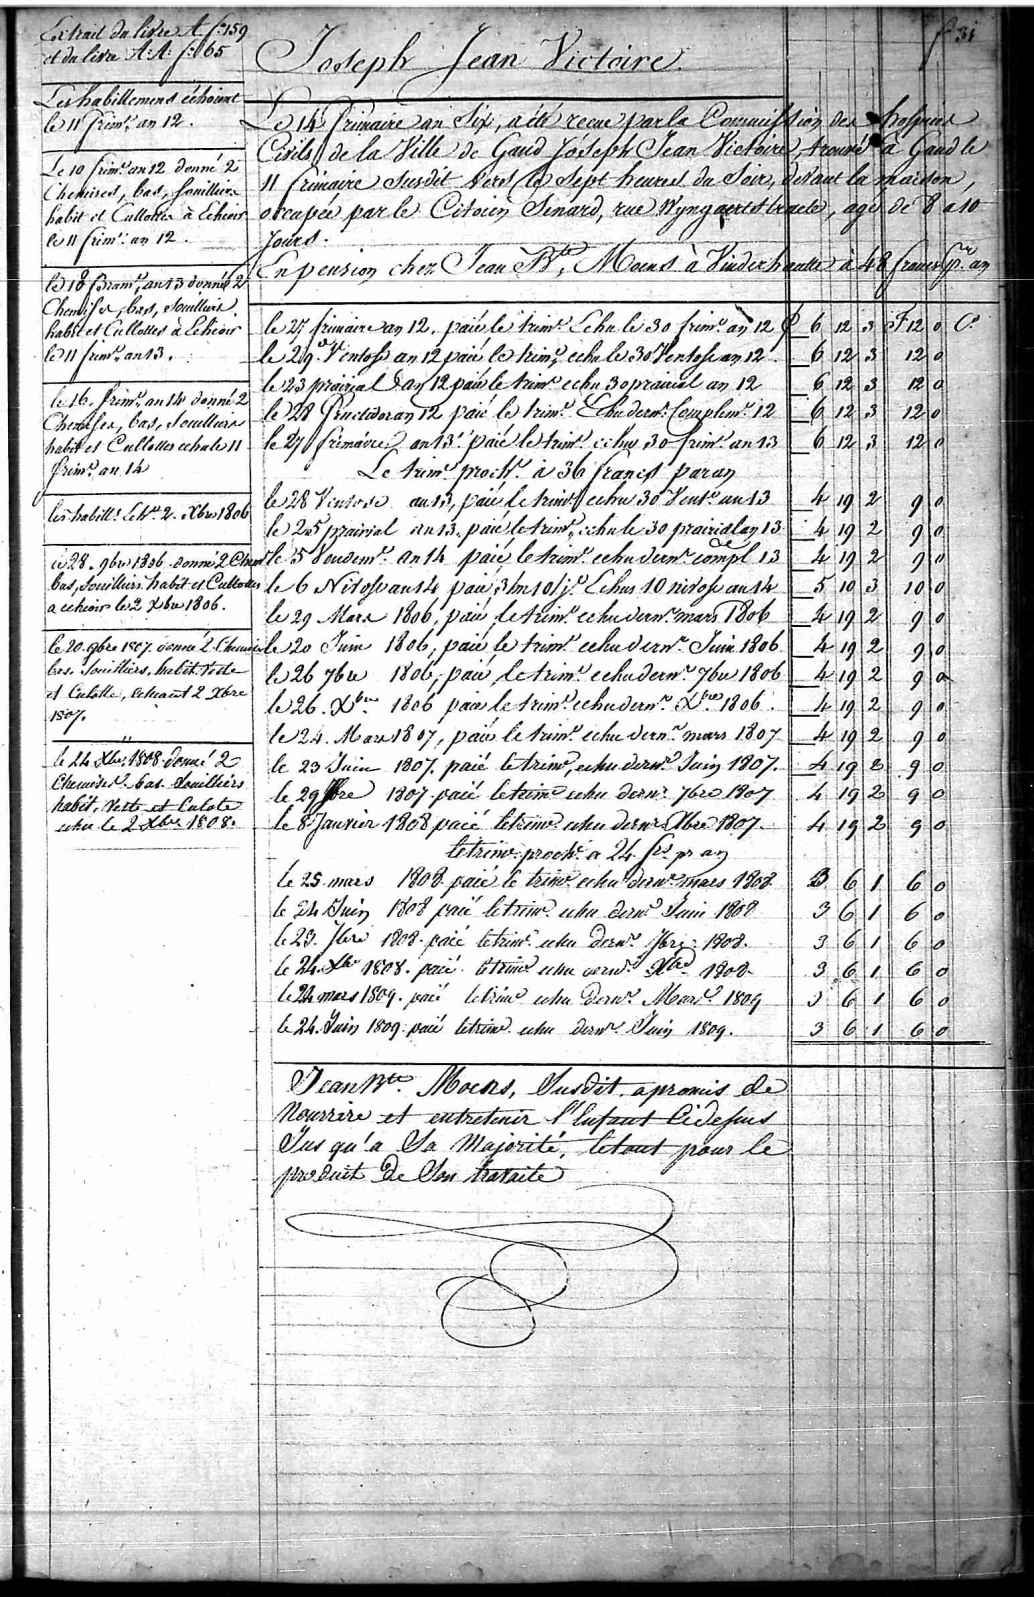 f° 31
Extrait du livre A f° 159
et du livre A:A: f° 65
Joseph Jean Victoire.
Les habillemens échoient
le 11 frim.e an 12.
Le 10 frim.e an 12 donné 2
Chemises, bas, souilliers
habit et Cullottes à Echoir
le 11 frim.e an 12.
le 18 Brum.e an 13 donné 2
Chemises, bas, souilliers
habit et Cullottes à Echoir
le 11 frim.e an 13.
le 16. frim.e an 14 donné 2
Chemises, bas, souilliers
habit et Cullottes echu le 11
frim.e an 14
les habill.s 2. Xbre 1806
ce 28. 9bre 1806 donné 2 Chem
bas, souilliers habit et Cullottes
a echeoir le 2 Xbre 1806.
le 20. 9bre 1807. donné 2 Chemises
bas. souilliers, habit. veste
et Culotte, echeant 2 Xbre
1807.
le 24 Xbre 1808 donné 2
Chemises bas souilliers
habit, veste et Culote
echu le 2 Xbre 1808.
Le 14 frimaire an Six, a été recue par la Commission des hospices
Civils de la Ville de Gand Joseph Jean Victoire, trouvé à Gand le
11 frimaire susdit vers les sept heures du Soir, devant la maison,
occupée par le Citoien Senard, rue Wyngaertstraete, agé de 8 a 10
Jours.
En pension chez Jean Bte, Moens à Vinderhautte à 48 francs pr. an
le 27 frimaire an 12. paié le trim.e Echu le 30 frim.e an 12 6 12 3 F 12 0 C.s
le 29. Ventose an 12 paié le trim.e echu le 30 Ventose an 12 6 12 3 12 0
le 23 prairial an 12 paié le trim.e echu 30 prairial an 12 6 12 3 12 0
le 28 fructidor an 12 paié le trim.e Echu dern.r Complem.r 12 6 12 3 12 0
le 27 frimaire an 13. paié le trim.e echu 30 frim.e an 13 6 12 3 12 0
Le trim.e proch.n à 36 francs par an
le 28 Ventose an 13, paié le trim.e echu 30 Vent.e an 13 4 19 2 9 0
le 25 prairial an 13. paié le trim.e echu le 30 prairial an 13 4 19 2 9 0
le 5 Vendem.re an 14 paié le trim.e echu dern.r compl.re 13 4 19 2 9 0
le 6 Nivose an 14 paié 3 m 10 j.s Echus 10 nivose an 14 5 10 3 10 0
le 29 Mars 1806, paié le trim.e echu dern.r mars 1806 4 19 2 9 0
le 20 Juin 1806, paié le trim.e echu dern.r Juin 1806 4 19 2 9 0
le 26 7bre 1806, paié, le trim.e echu dern.r 7bre 1806 4 19 2 9 0
le 26. Xbre 1806 paié le trim.e echu dern.r Xbre 1806. 4 19 2 9 0
le 24. Mars 1807, paié le trim.e echu dern.r mars 1807 4 19 2 9 0
le 23 Juin 1807. paié le trim.e echu dern.r Juin 1807. 4 19 2 9 0
le 29 7bre 1807 paié le trim.e echu dern.r 7bre 1807 4 19 2 9 0
le 8 Janvier 1808 paié le trim.e echu dern.r Xbre 1807. 4 19 2 9 0
le trim.e proch.n a 24 frs pr an
le 25. mars 1808 paié le trim.e echu dern.r mars 1808 3 6 1 6 0
le 24 Juin 1808 paié le trim.e echu dern.r Juin 1808 3 6 1 6 0
le 23. 7bre 1808. paié le trim.e echu dern.r 7bre 1808. 3 6 1 6 0
le 24. Xbre 1808. paié le trim.e echu dern.r Xbre 1808. 3 6 1 6 0
le 24 mars 1809. paié le trim.e echu dern.r Mars 1809 3 6 1 6 0
le 24. Juin 1809. paié le trim.e echu dern.r Juin 1809. 3 6 1 6 0
Jean Bte. Moens, Susdit. a promis de
Nourrire et entretenir l'Enfant Cidessus
Jus qu'a Sa Majorité, letout pour le
produit de Son travaile